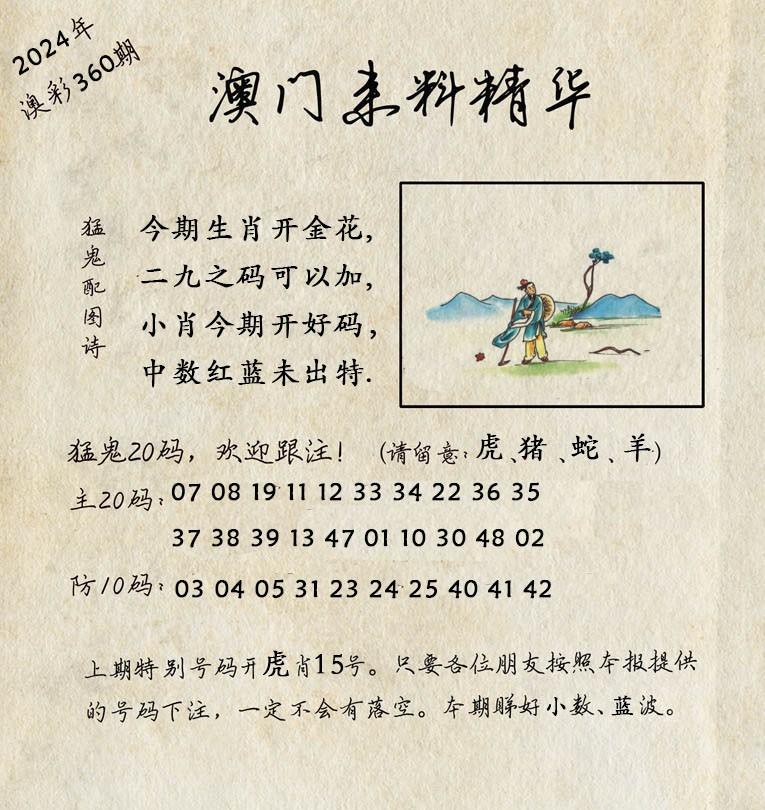 2024年
澳彩360期
澳门来料精华
猛鬼配图诗
今期生肖开金花,
二九之码可以加,
小肖今期开好码,
中数红蓝未出特.
猛鬼20码，欢迎跟注！(请留意：虎、猪、蛇、羊)
主20码：07 08 19 11 12 33 34 22 36 35
37 38 39 13 47 01 10 30 48 02
防10码：03 04 05 31 23 24 25 40 41 42
上期特别号码开虎肖15号。只要各位朋友按照本报提供
的号码下注，一定不会有落空。本期睇好小数、蓝波。